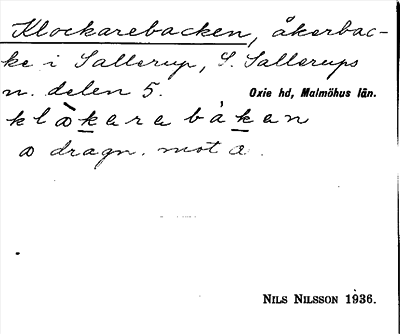 Klockarebacken, åkerbac-
ke i Sallerup, S. Sallerups
n. delen 5. Oxie hd, Malmöhus län.
klɔ̀kara bákan
ɔ dragn. mot a.
NILS NILSSON 1936.